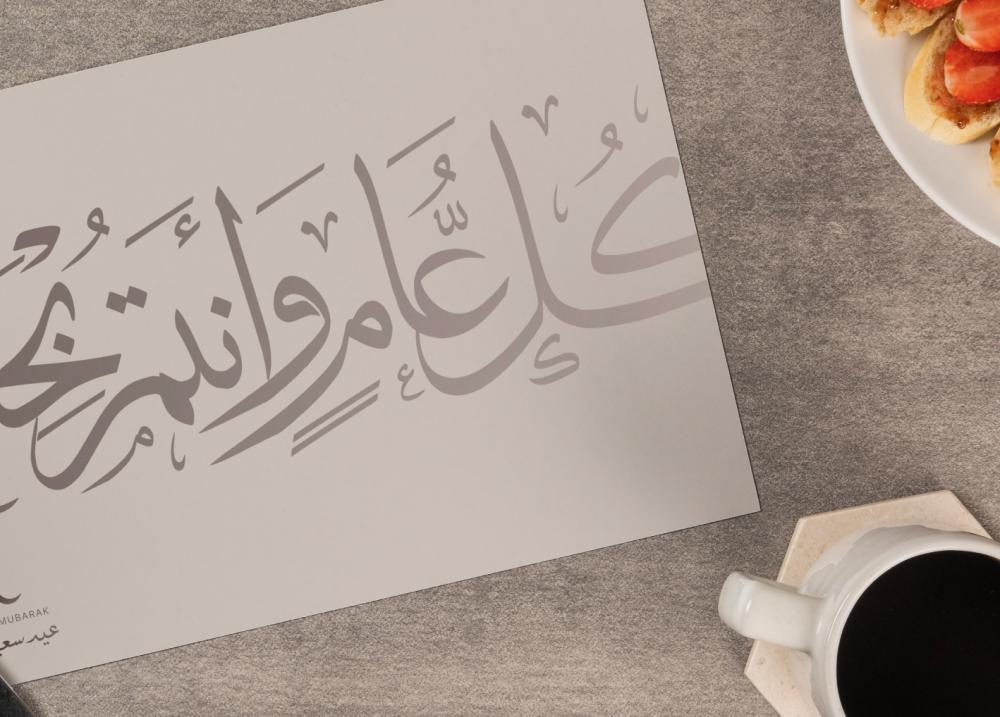 كُلُّ عَامٍ وَأَنْتُمْ بِخَـ
MUBARAK
عيد سعيـ